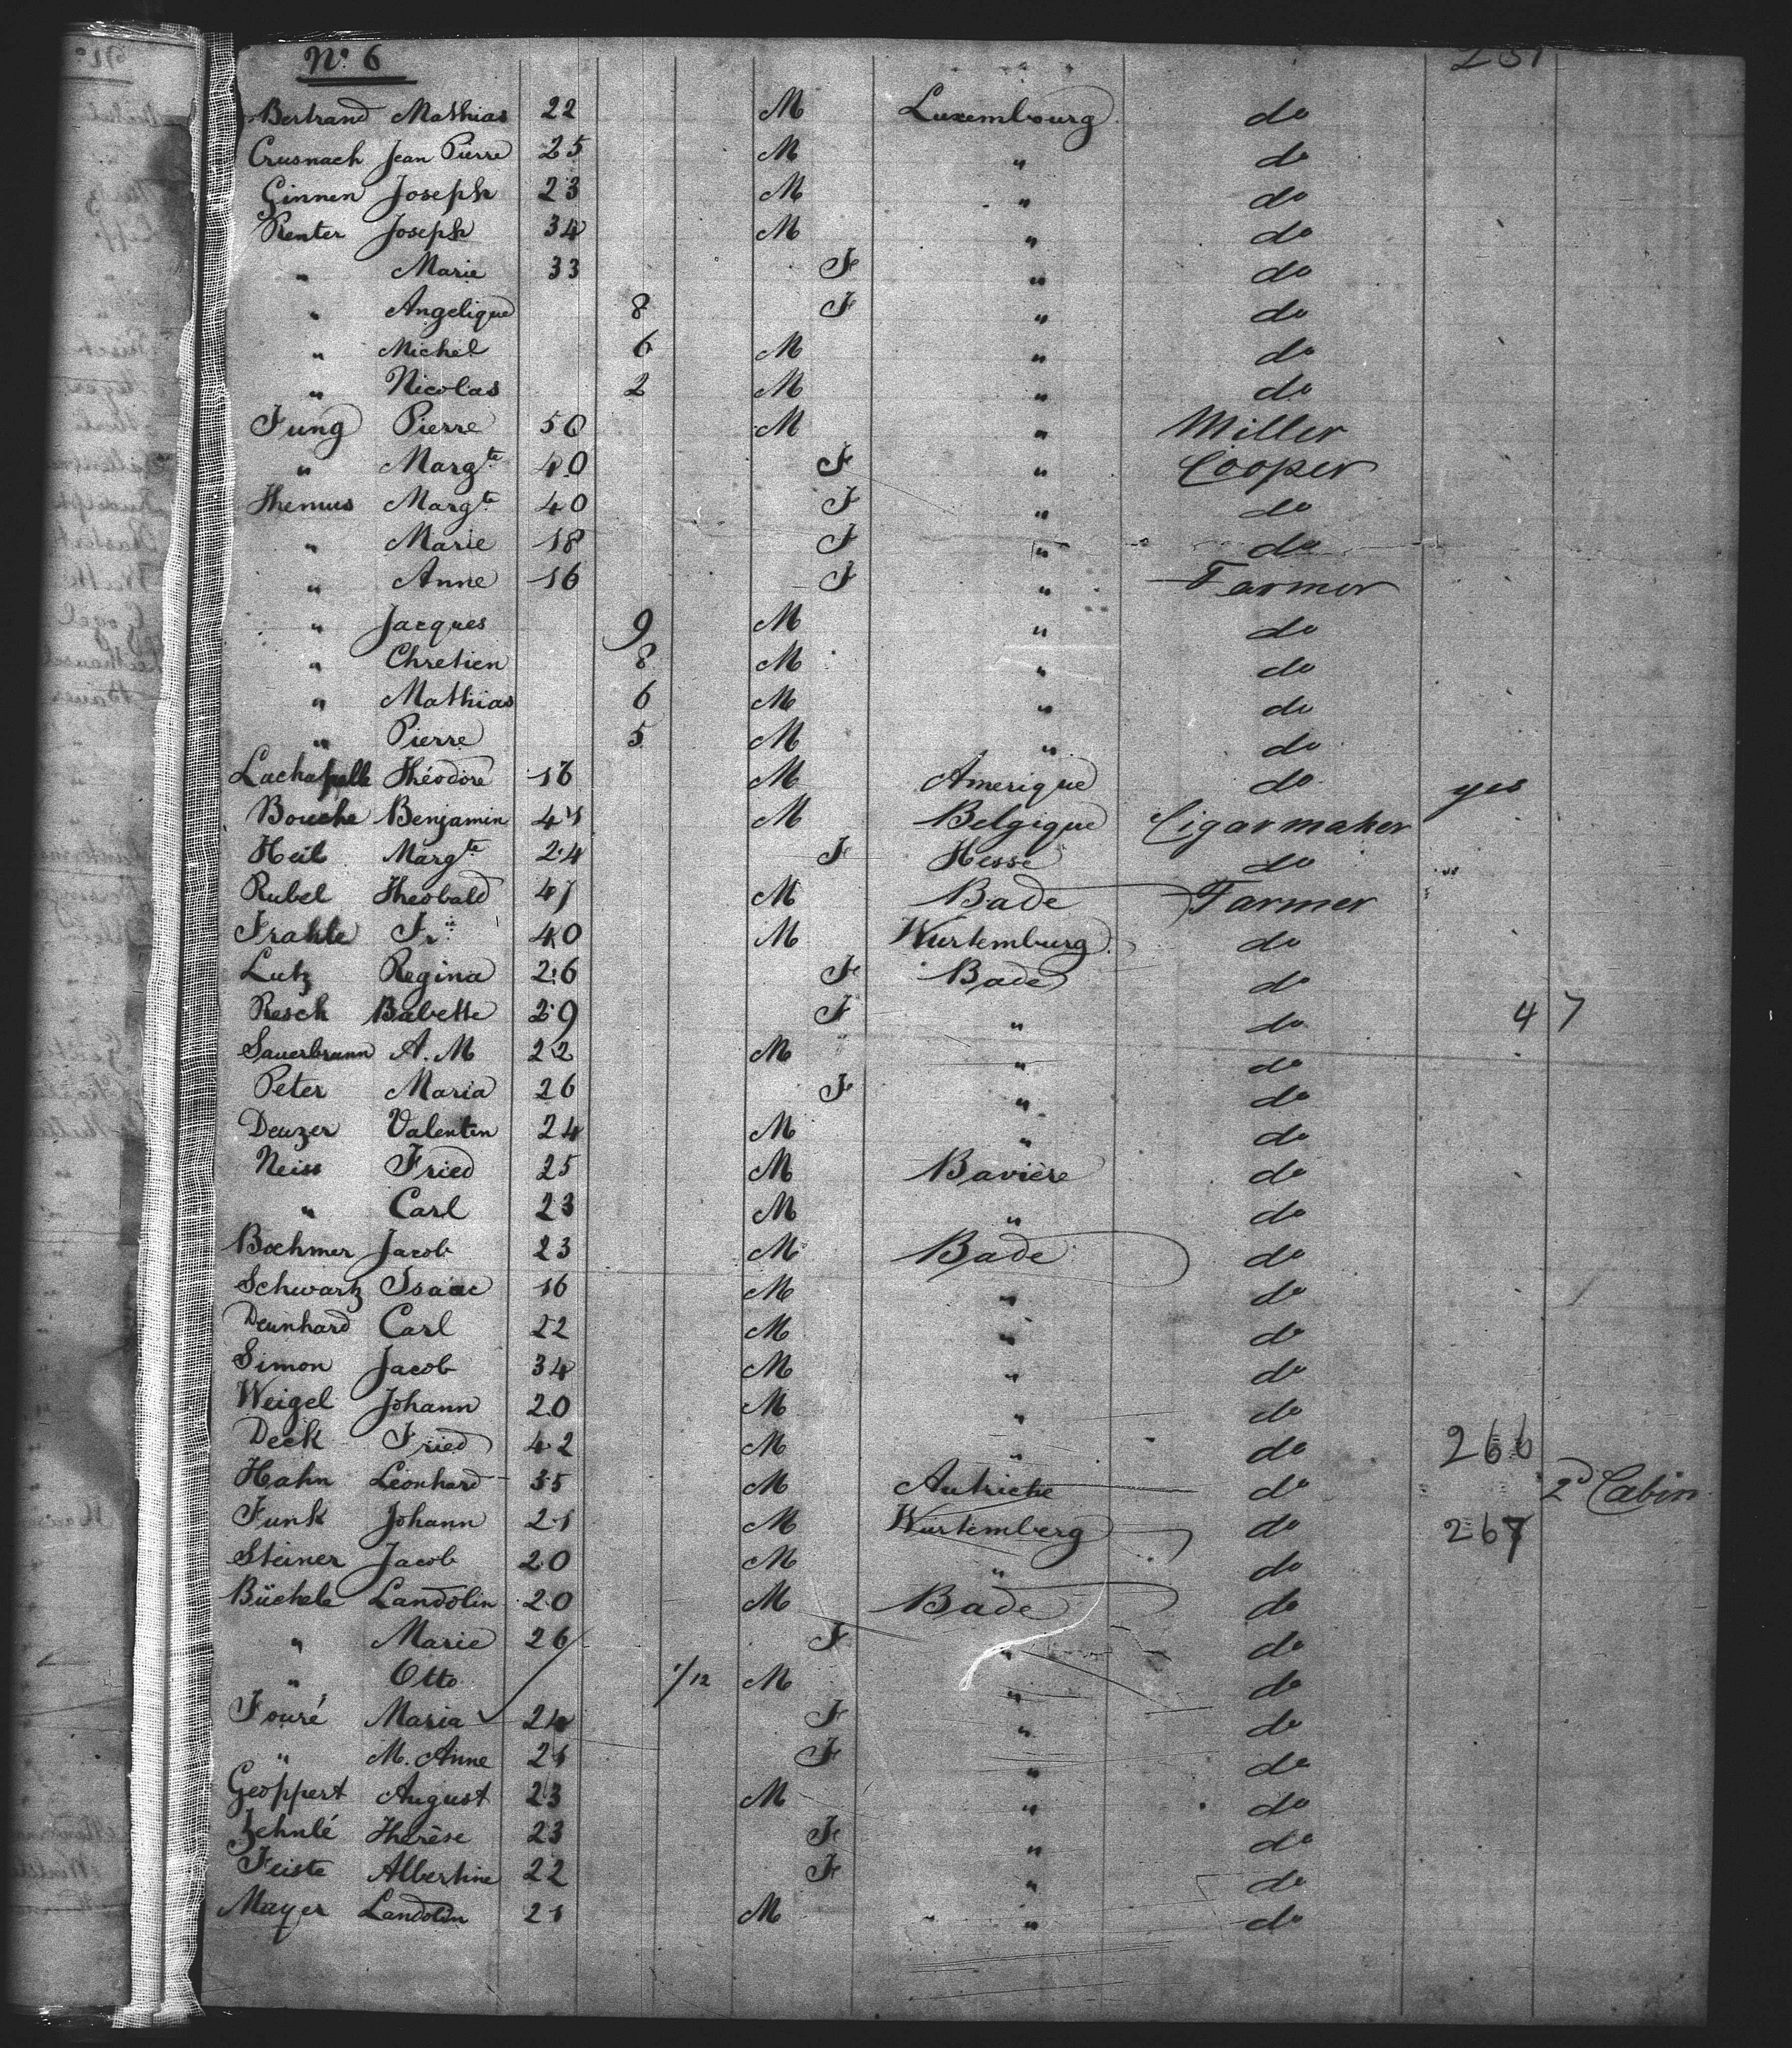 No. 6
Bertrand Mathias 22 M Luxembourg do
Crusnach Jean Pierre 25 M " do
Ginnen Joseph 23 M " do
Renter Joseph 34 M " do
" Marie 33 F " do
" Angelique 8 F " do
" Michel 6 M " do
" Nicolas 2 M " do
Jung Pierre 50 M " Miller
" Margte 40 F " Cooper
Themus Margte 40 F " do
" Marie 18 F " do
" Anne 16 F " Farmer
" Jacques 9 M " do
" Chretien 8 M " do
" Mathias 6 M " do
" Pierre 5 M " do
Lachapelle Théodore 16 M Amerique do yes
Bouche Benjamin 41 M Belgique Cigarmaker
Heil Margte 24 F Hesse do
Rubel Theobald 47 M Bade Farmer
Frahle Fr. 40 M Wurtemburg do
Lutz Regina 26 F Bade do
Resch Babette 29 F " do 47
Sauerbrunn A. M 22 M " do
Peter Maria 26 F " do
Deuzer Valentin 24 M " do
Neiss Fried 25 M Bavière do
" Carl 23 M " do
Boehmer Jacob 23 M Bade do
Schwartz Isaac 16 M " do
Deunhard Carl 22 M " do
Simon Jacob 34 M " do
Weigel Johann 20 M " do
Deck Fried 42 M " do 266
Hahn Leonhard 35 M Autriche do 2d Cabin
Funk Johann 21 M Wurtemberg do 267
Steiner Jacob 20 M " do
Büchele Landolin 20 M Bade do
" Marie 26 F " do
" Otto 1/12 M " do
Fouré Maria 24 F " do
" M. Anne 21 F " do
Geoppert August 23 M " do
Zehnlé Therèse 23 F " do
Feiste Albertine 22 F " do
Mayer Landolin 21 M " do